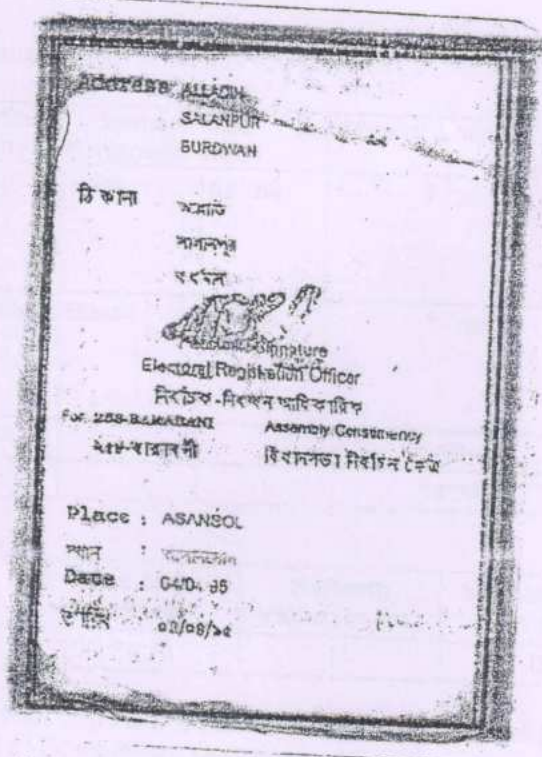 Address ALLADIH
SALANPUR
BURDWAN
ঠিকানা
সালানপুর
বর্ধমান
Facsimile Signature
Electoral Registration Officer
নির্বাচক-নিবন্ধন আধিকারিক
For 258-BARABANI Assembly Constituency
২৫৮-বারাবনী বিধানসভা নির্বাচন ক্ষেত্র
Place : ASANSOL
স্থান : আসানসোল
Date : 04/04/95